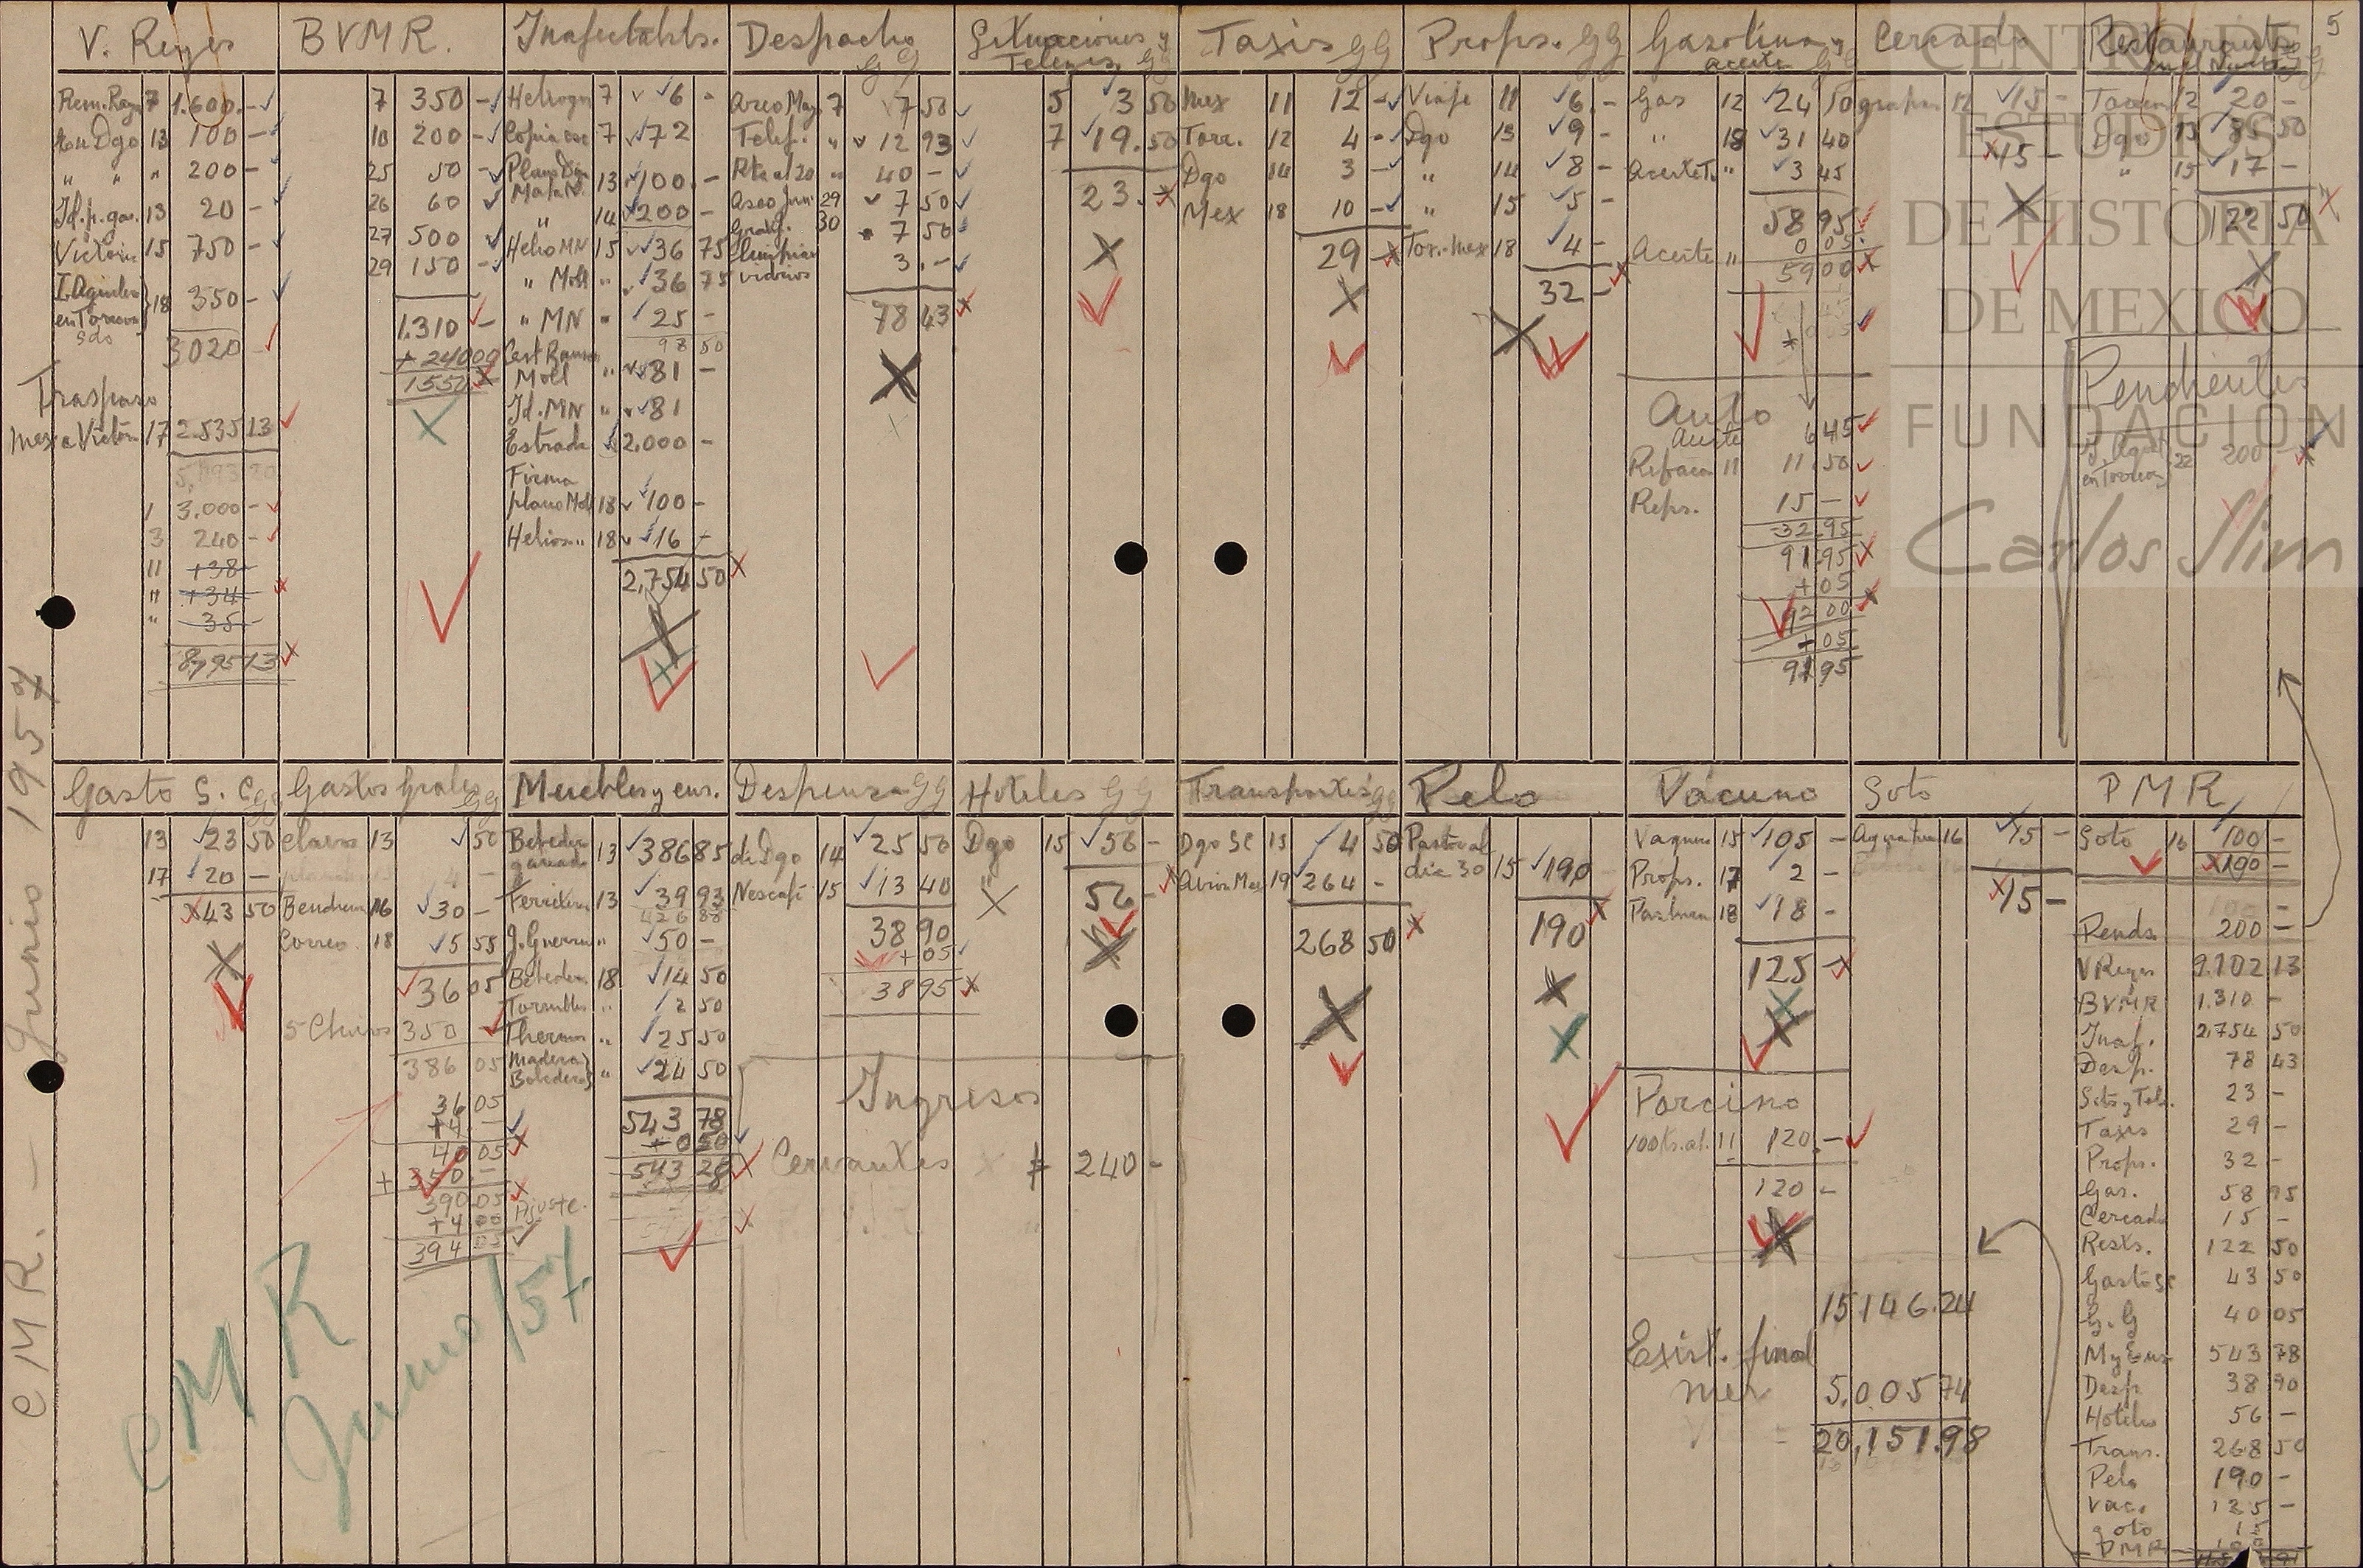 5
CMR. — Junio 1957
V. Reyes
Rem. Raya 7 1.600.-
en Dgo 13 100 -
" " " 200 -
Id. p. gas. 13 20 -
Victoria 15 750 -
en Torreon 18 350 -
3020 -
Traspaso
Mex a Victoria 17 2.535 13
1 3.000 -
3 240 -
11 +38
" +34
" 35
BVMR.
7 350 -
10 200 -
25 50 -
26 60
27 500
29 150 -
1.310 -
+ 240 00
1550
Inafectablds.
7 6 -
Copia esc 7 72
13 100. -
" 14 200 -
Helio MN 15 36 75
" Moll " 36 75
" MN " 25 -
98 50
Moll " 81 -
Id. MN " 81
Estrada 2.000 -
Firma
plano Moll 18 100 -
Helios " 18 16 -
2,754 50
Despacho GG
Aseo May. 7 7 50
Telef. " 12 93
Rta al 20 " 40 -
Aseo Jun. 29 7 50
Gratif. 30 7 50
Limpiar
vidrios 3. -
78 43
Situaciones y
Telegrs. GG
5 3 50
7 19.50
23. -
Taxis GG
Mex 11 12 -
Torr. 12 4 -
Dgo 14 3 -
Mex 18 10 -
29 -
Props. GG
Viaje 11 6. -
Dgo 13 9 -
" 14 8 -
" 15 5 -
Torr-Mex 18 4 -
32 -
Gasolina y
aceite GG
Gas 12 24 10
" 18 31 40
Aceite T. " 3 45
58 95
0 05
Aceite " 59 00
Auto
Aceite 6 45
Refacn 11 11 50
Reps. 15 -
32.95
91.95
+ 05
92 00
+ 05
91 95
Cercado
grapas 12 15 -
15 -
Restaurants
GG
Torreon 12 20 -
Dgo 13 85 50
" 15 17 -
122 50
Pendientes
en Torreon 22 200 -
CENTRO DE
ESTUDIOS
DE HISTORIA
DE MEXICO
FUNDACION
Carlos Slim
Gasto S. C. GG
13 23 50
17 20 -
43 50
Gastos Grales GG
Clavos 13 50
4 -
16 30 -
Correo 18 5 55
36 05
5 350 -
386 05
36 05
+4 -
40 05
+ 350. -
390.05
+4 00 Ajuste.
394 05
Muebles y ens.
Bebedero
ganado 13 386 85
13 39 93
426 88
J. Guerra " 50 -
Bebedero 18 14 50
Tornillos " 2 50
Thermos " 25 50
Madera
Bebederos " 24 50
543 78
543 28
Despensa GG
de Dgo 14 25 50
Nescafé 15 13 40
38 90
+ 05
38 95
Hoteles GG
Dgo 15 56 -
56 -
Ingresos
Cervantes $ 240 -
Transportes GG
Dgo SC 13 4 50
Avion Mex 19 264 -
268 50
Pelo
Pastor al
dia 30 15 190
190
Vacuno
Vaquero 15 105 -
Props. 17 2 -
Pastura 18 18 -
125 -
Porcino
11 120. -
120 -
Soto
16 15 -
15 -
15146.24
Exist. final
mes 5.005 74
20,151.98
PMR
Soto 16 100 -
190 -
Pends. 200 -
V Reyes 9.102 13
BVMR 1.310 -
Inaf. 2,754 50
Desp. 78 43
Sits y Tels. 23 -
Taxis 29 -
Props. 32 -
Gas. 58 95
Cercado 15 -
Rests. 122 50
Gasto SC 43 50
G. G 40 05
M y Ens 543 78
Desp. 38 90
Hoteles 56 -
Trans. 268 50
Pelo 190 -
Vac. 125 -
Soto 15
PMR
CMR
Junio/57